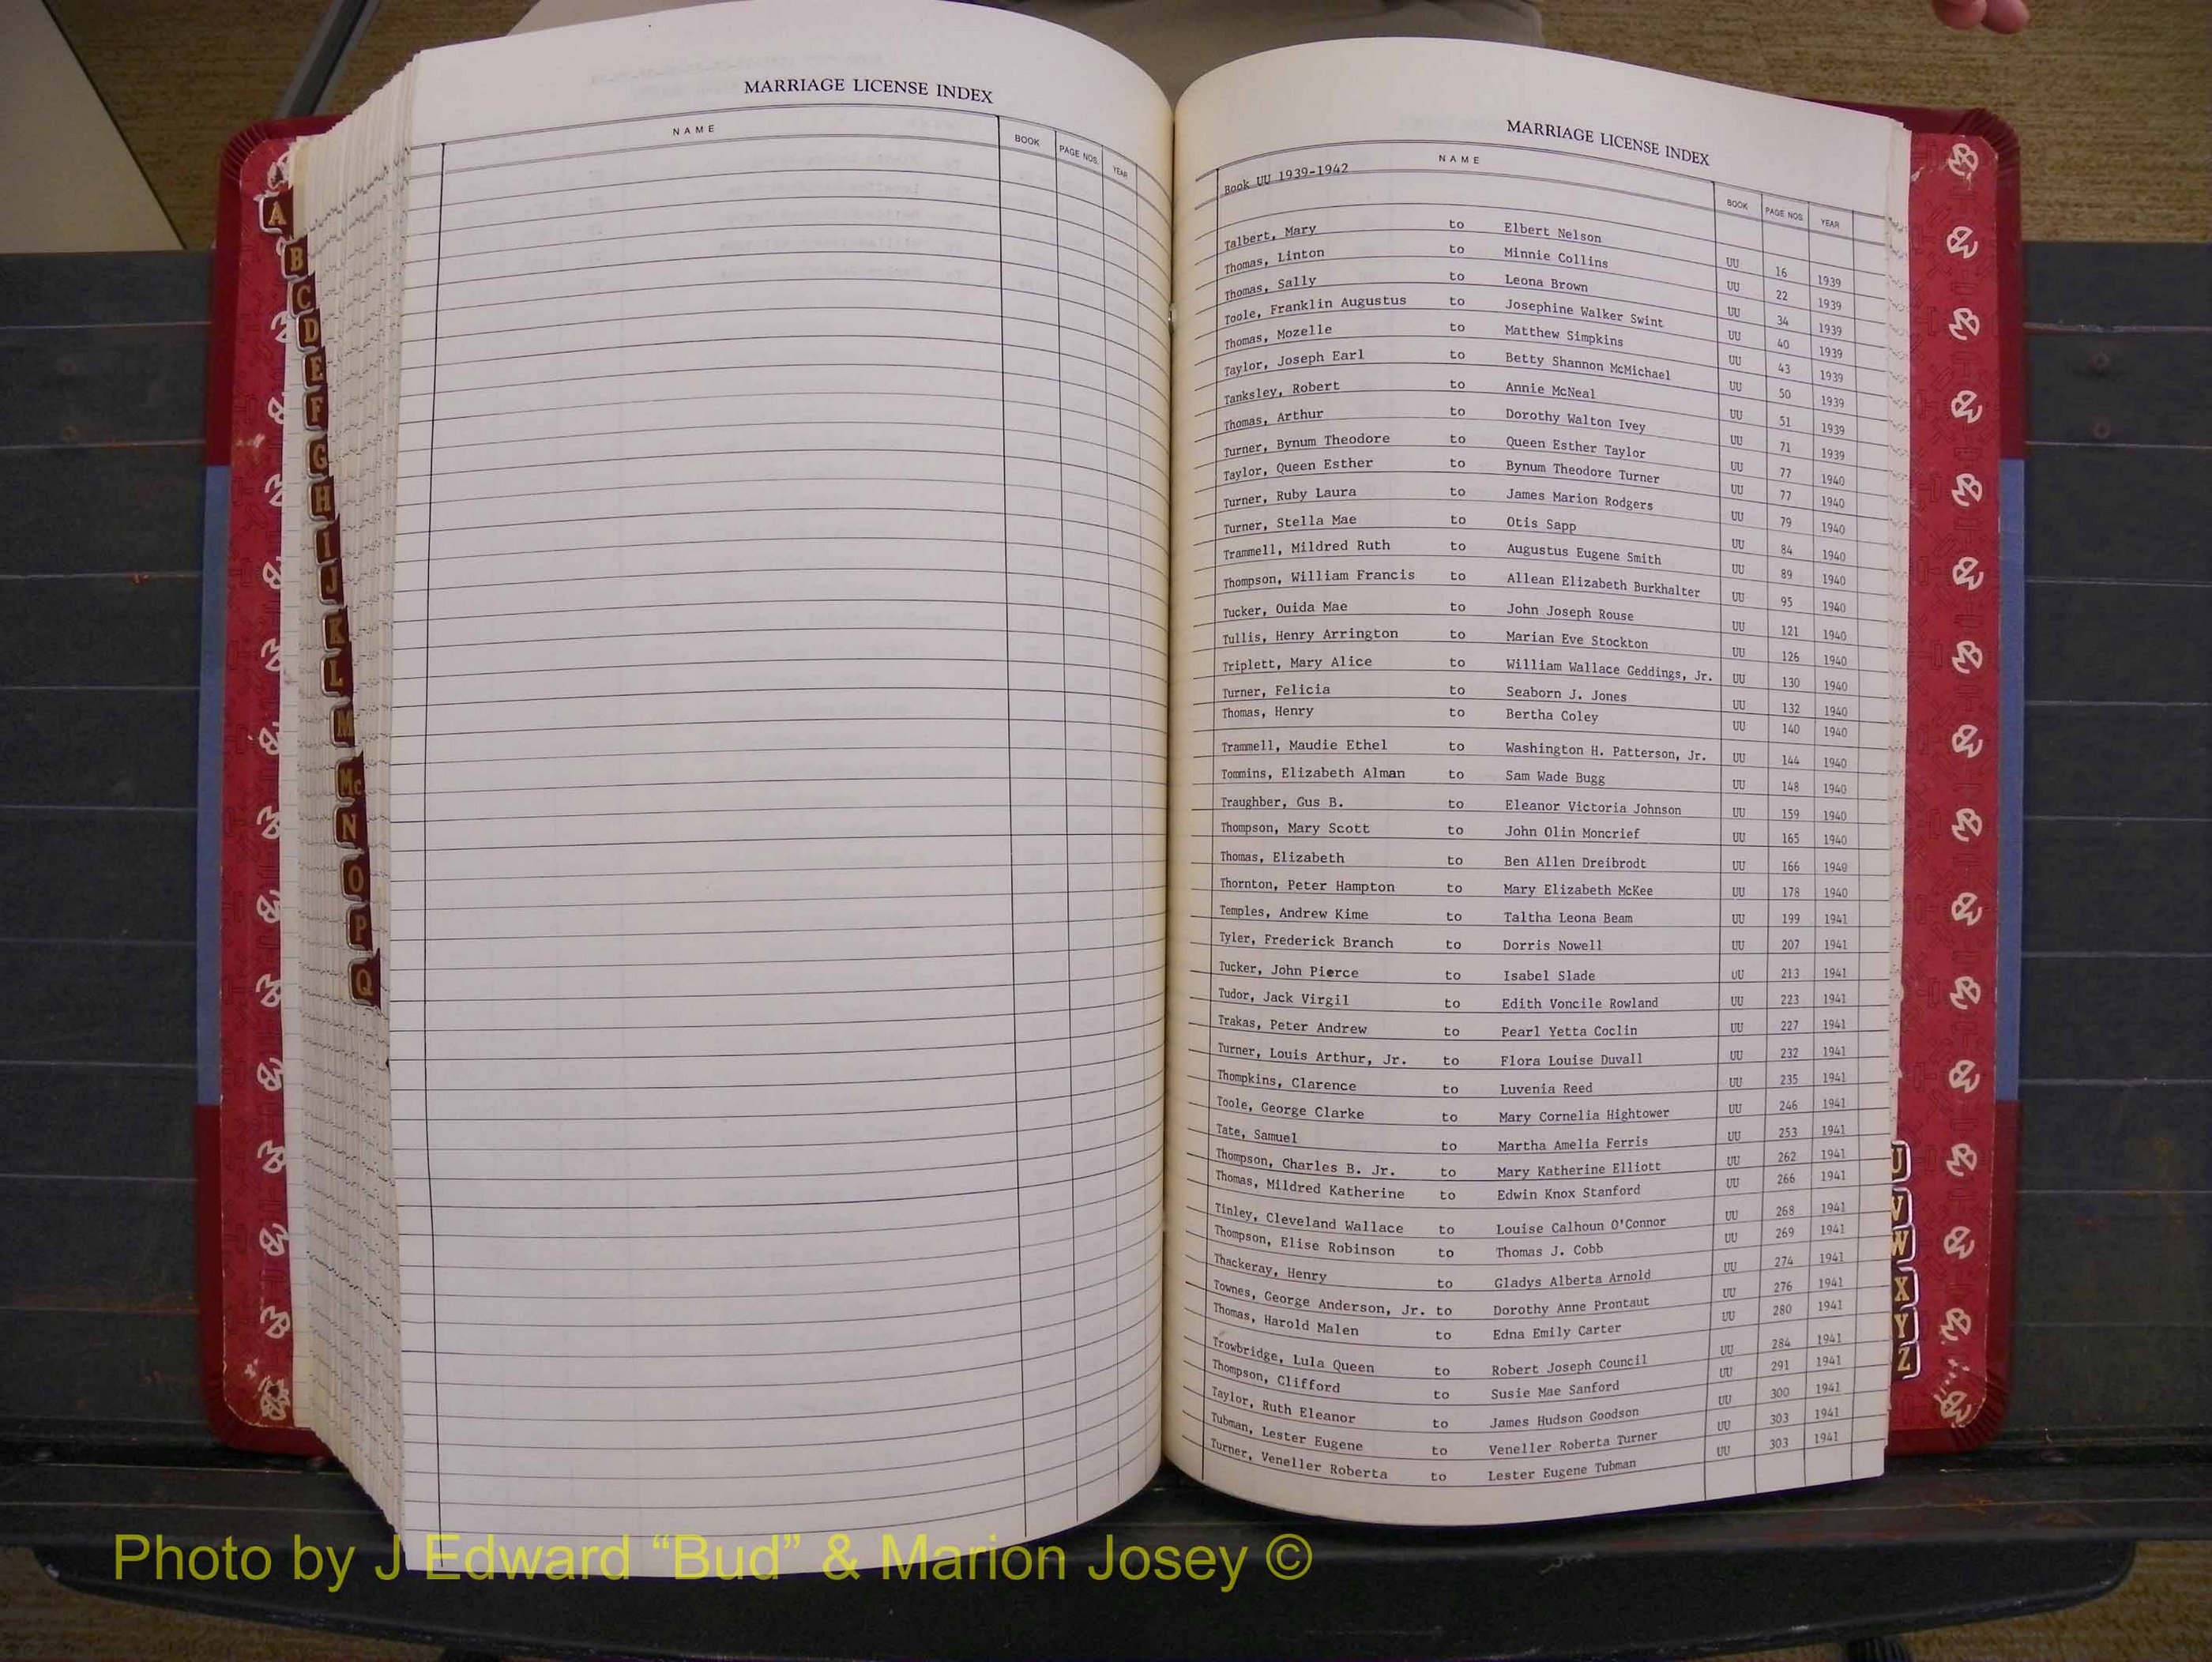 MARRIAGE LICENSE INDEX
NAME BOOK PAGE NOS. YEAR
A
B
C
D
E
F
G
H
I
J
K
L
M
Mc
N
O
P
Q
MARRIAGE LICENSE INDEX
NAME BOOK PAGE NOS. YEAR
Book UU 1939-1942
Talbert, Mary to Elbert Nelson UU 16 1939
Thomas, Linton to Minnie Collins UU 22 1939
Thomas, Sally to Leona Brown UU 34 1939
Toole, Franklin Augustus to Josephine Walker Swint UU 40 1939
Thomas, Mozelle to Matthew Simpkins UU 43 1939
Taylor, Joseph Earl to Betty Shannon McMichael UU 50 1939
Tanksley, Robert to Annie McNeal UU 51 1939
Thomas, Arthur to Dorothy Walton Ivey UU 71 1939
Turner, Bynum Theodore to Queen Esther Taylor UU 77 1940
Taylor, Queen Esther to Bynum Theodore Turner UU 77 1940
Turner, Ruby Laura to James Marion Rodgers UU 79 1940
Turner, Stella Mae to Otis Sapp UU 84 1940
Trammell, Mildred Ruth to Augustus Eugene Smith UU 89 1940
Thompson, William Francis to Allean Elizabeth Burkhalter UU 95 1940
Tucker, Ouida Mae to John Joseph Rouse UU 121 1940
Tullis, Henry Arrington to Marian Eve Stockton UU 126 1940
Triplett, Mary Alice to William Wallace Geddings, Jr. UU 130 1940
Turner, Felicia to Seaborn J. Jones UU 132 1940
Thomas, Henry to Bertha Coley UU 140 1940
Trammell, Maudie Ethel to Washington H. Patterson, Jr. UU 144 1940
Tommins, Elizabeth Alman to Sam Wade Bugg UU 148 1940
Traughber, Gus B. to Eleanor Victoria Johnson UU 159 1940
Thompson, Mary Scott to John Olin Moncrief UU 165 1940
Thomas, Elizabeth to Ben Allen Dreibrodt UU 166 1940
Thornton, Peter Hampton to Mary Elizabeth McKee UU 178 1940
Temples, Andrew Kime to Taltha Leona Beam UU 199 1941
Tyler, Frederick Branch to Dorris Nowell UU 207 1941
Tucker, John Pierce to Isabel Slade UU 213 1941
Tudor, Jack Virgil to Edith Voncile Rowland UU 223 1941
Trakas, Peter Andrew to Pearl Yetta Coclin UU 227 1941
Turner, Louis Arthur, Jr. to Flora Louise Duvall UU 232 1941
Thompkins, Clarence to Luvenia Reed UU 235 1941
Toole, George Clarke to Mary Cornelia Hightower UU 246 1941
Tate, Samuel to Martha Amelia Ferris UU 253 1941
Thompson, Charles B. Jr. to Mary Katherine Elliott UU 262 1941
Thomas, Mildred Katherine to Edwin Knox Stanford UU 266 1941
Tinley, Cleveland Wallace to Louise Calhoun O'Connor UU 268 1941
Thompson, Elise Robinson to Thomas J. Cobb UU 269 1941
Thackeray, Henry to Gladys Alberta Arnold UU 274 1941
Townes, George Anderson, Jr. to Dorothy Anne Prontaut UU 276 1941
Thomas, Harold Malen to Edna Emily Carter UU 280 1941
Trowbridge, Lula Queen to Robert Joseph Council UU 284 1941
Thompson, Clifford to Susie Mae Sanford UU 291 1941
Taylor, Ruth Eleanor to James Hudson Goodson UU 300 1941
Tubman, Lester Eugene to Veneller Roberta Turner UU 303 1941
Turner, Veneller Roberta to Lester Eugene Tubman UU 303 1941
U
V
W
X
Y
Z
Photo by J Edward “Bud” & Marion Josey ©